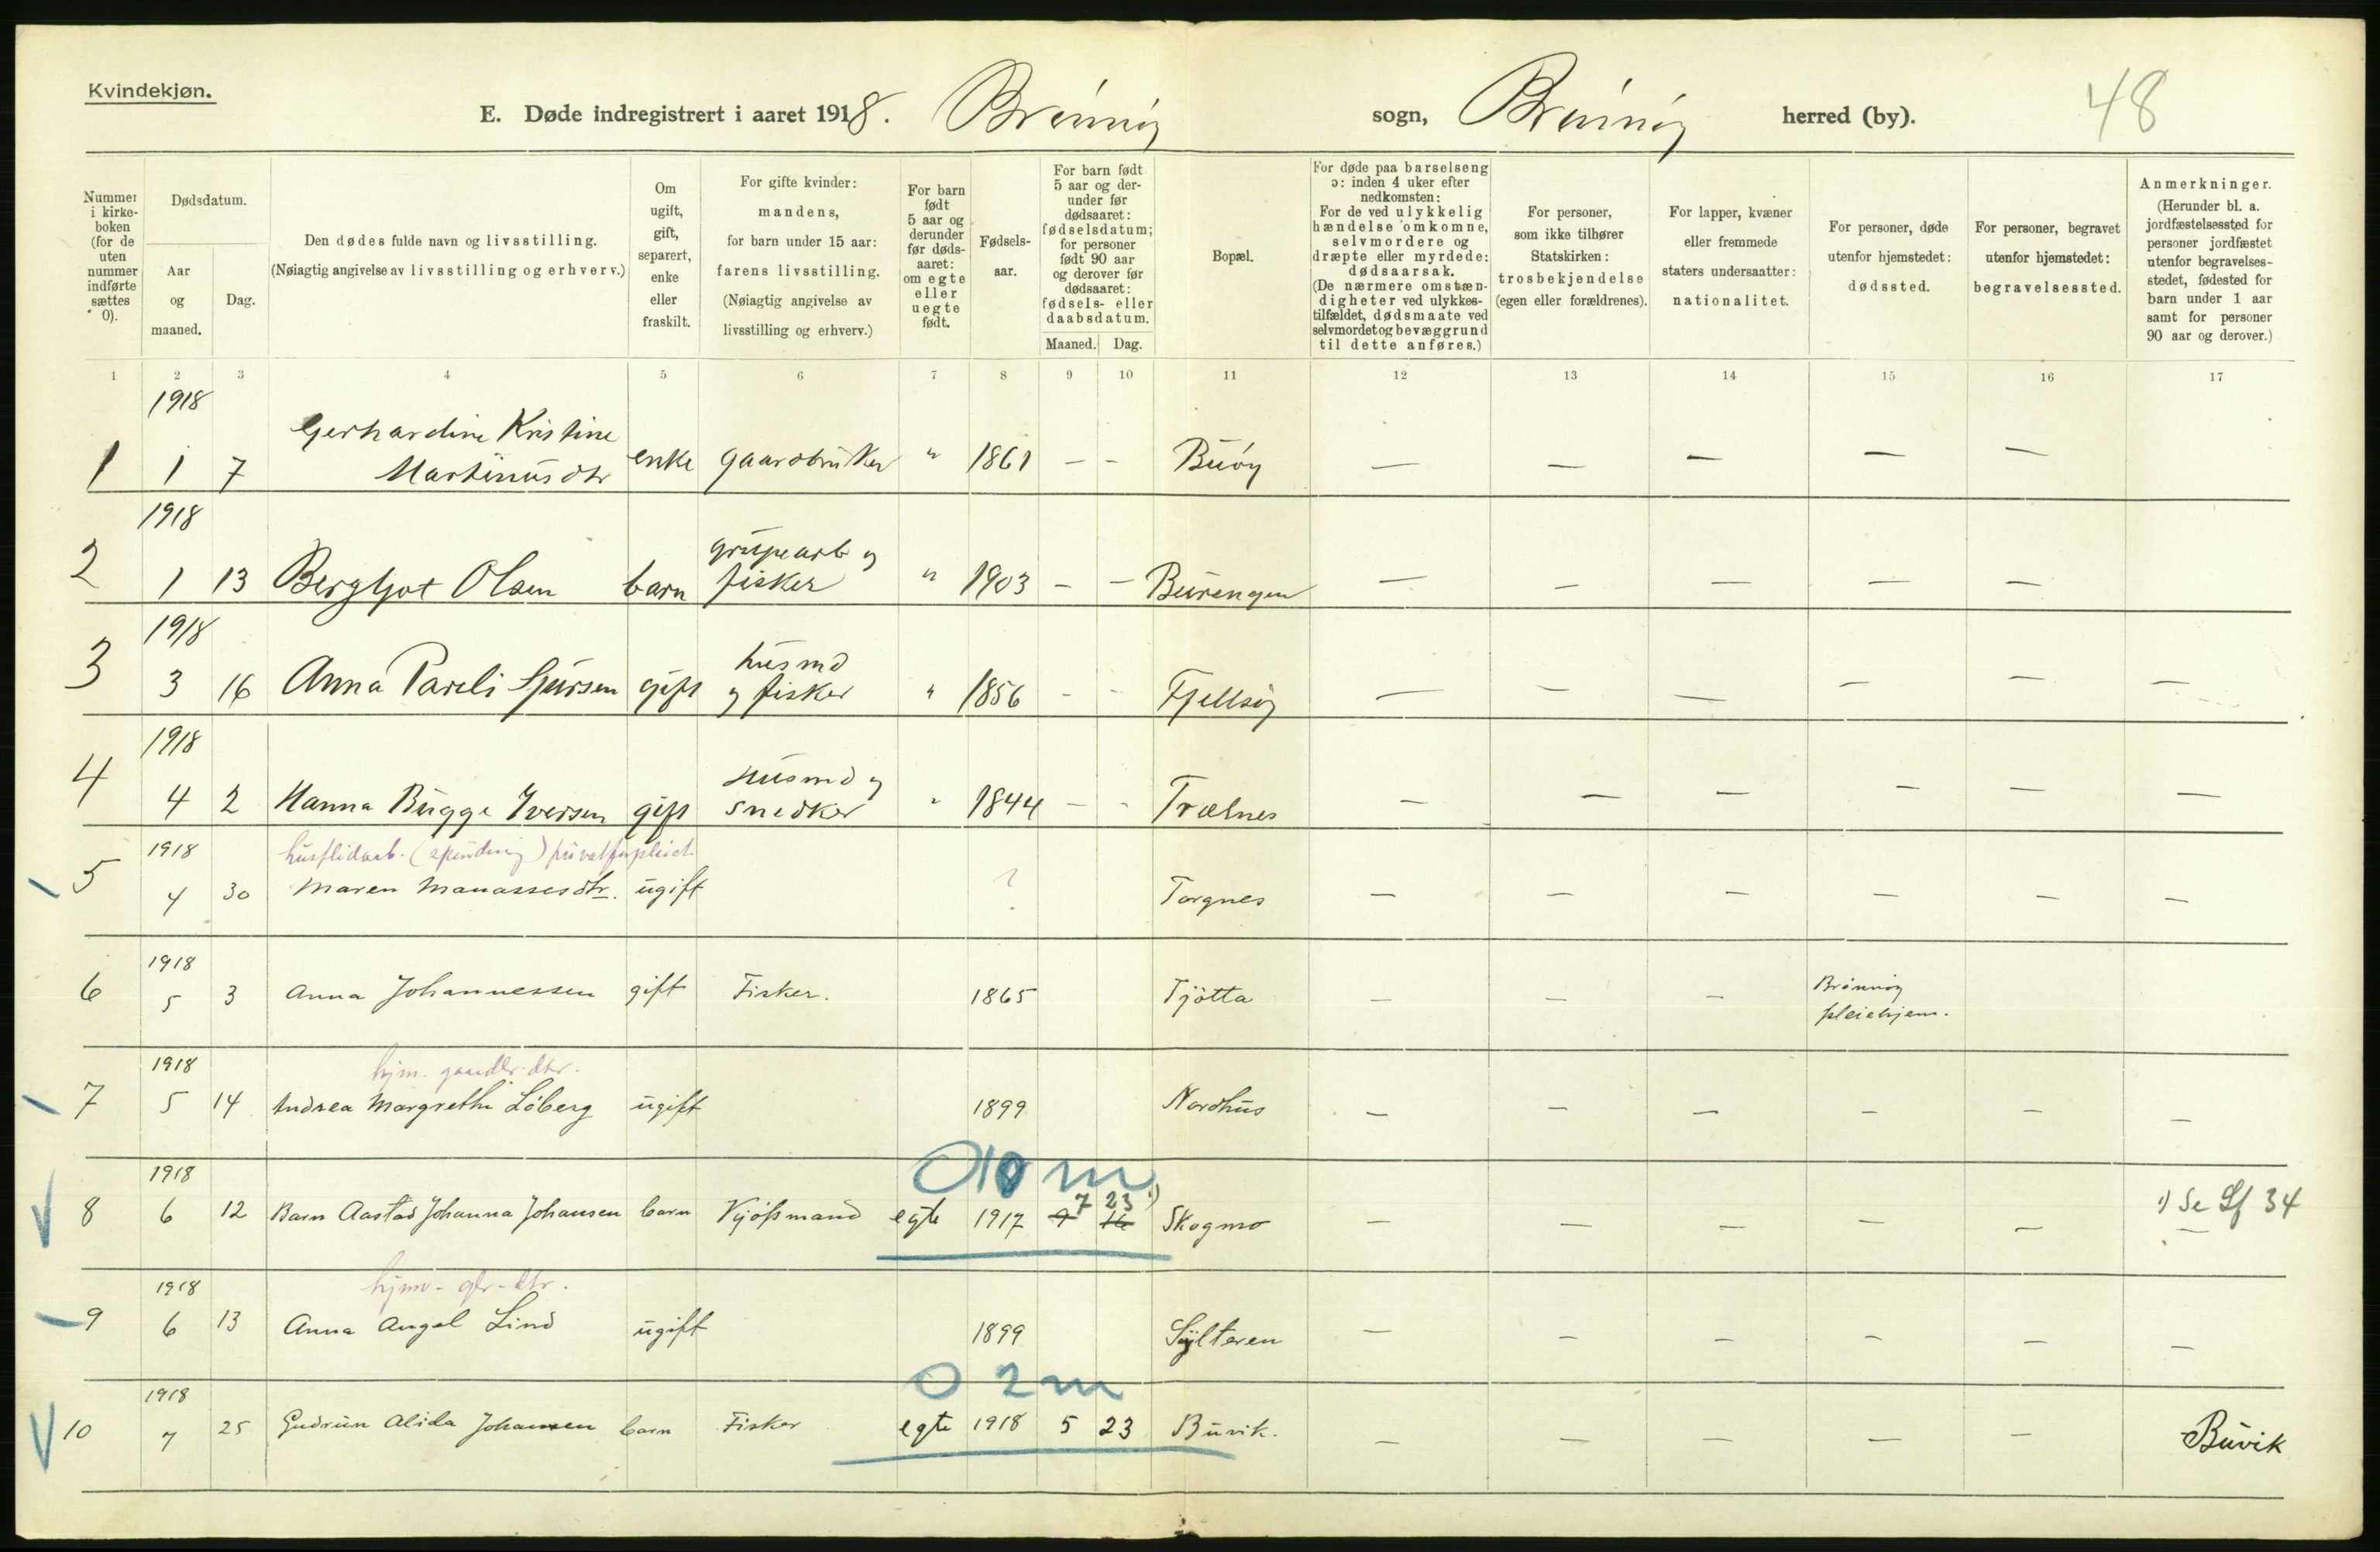 Kvindekjøn.
E. Døde indregistrert i aaret 1918. Brönnöy sogn, Brönnöy herred (by). 48
Nummer i kirke-boken (for de uten nummer indførte sættes 0).
Dødsdatum.
Aar og maaned.
Dag.
Den dødes fulde navn og livsstilling.
(Nøiagtig angivelse av livsstilling og erhverv.)
Om ugift, gift, separert, enke eller fraskilt.
For gifte kvinder: mandens, for barn under 15 aar: farens livsstilling. (Nøiagtig angivelse av livsstilling og erhverv.)
For barn født 5 aar og derunder før døds-aaret: om egte eller uegte født.
Fødsels-aar.
For barn født 5 aar og der-under før dødsaaret: fødselsdatum; for personer født 90 aar og derover før dødsaaret: fødsels- eller daabsdatum.
Maaned. Dag.
Bopæl.
For døde paa barselseng ɔ: inden 4 uker efter nedkomsten: For de ved ulykkelig hændelse omkomne, selvmordere og dræpte eller myrdede: dødsaarsak. (De nærmere omstæn-digheter ved ulykkes-tilfældet, dødsmaate ved selvmordet og bevæggrund til dette anføres.)
For personer, som ikke tilhører Statskirken: trosbekjendelse (egen eller forældrenes).
For lapper, kvæner eller fremmede staters undersaatter: nationalitet.
For personer, døde utenfor hjemstedet: dødssted.
For personer, begravet utenfor hjemstedet: begravelsessted.
Anmerkninger. (Herunder bl. a. jordfæstelsessted for personer jordfæstet utenfor begravelses-stedet, fødested for barn under 1 aar samt for personer 90 aar og derover.)
1 2 3 4 5 6 7 8 9 10 11 12 13 14 15 16 17
1918
Gerhardine Kristine
1 1 7 Martinusdtr enke gaardbruker " 1861 - - Buöy — — — — —
1918
grubearb og
2 1 13 Bergljot Olsen barn fisker " 1903 - - Burengen — — — — —
1918
husmd
3 3 16 Anna Pareli Sjursen gift og fisker " 1856 - - Fjellsöy — — — — — —
1918
Husmd og
4 4 2 Hanna Bugge Iversen gift snedker " 1844 - - Trælnes — — — — — —
1918 husflidarb. (spinding) privat forpleiet.
5 4 30 Maren Manassesdtr. ugift ? Torgnes — — — — — —
1918
6 5 3 Anna Johannessen gift Fisker. 1865 Tjötta — — — Brönnöy
pleiehjem.
1918 hjm. gaardbr. dtr.
7 5 14 Andrea Margrethe Löberg ugift 1899 Nordhus — — — — — —
1918 0 10 m
7 23 1)
8 6 12 Barn Aastad Johanna Johansen barn Kjöpmand egte 1917 9 16 Skogmo — — — — — 1) Se Lf 34
1918 hjm - gbr - dtr.
9 6 13 Anna Angel Lind ugift 1899 Sylteren — — — — — —
1918 0 2 m
10 7 25 Gudrun Alida Johansen barn Fisker egte 1918 5 23 Buvik. — — — — — Buvik